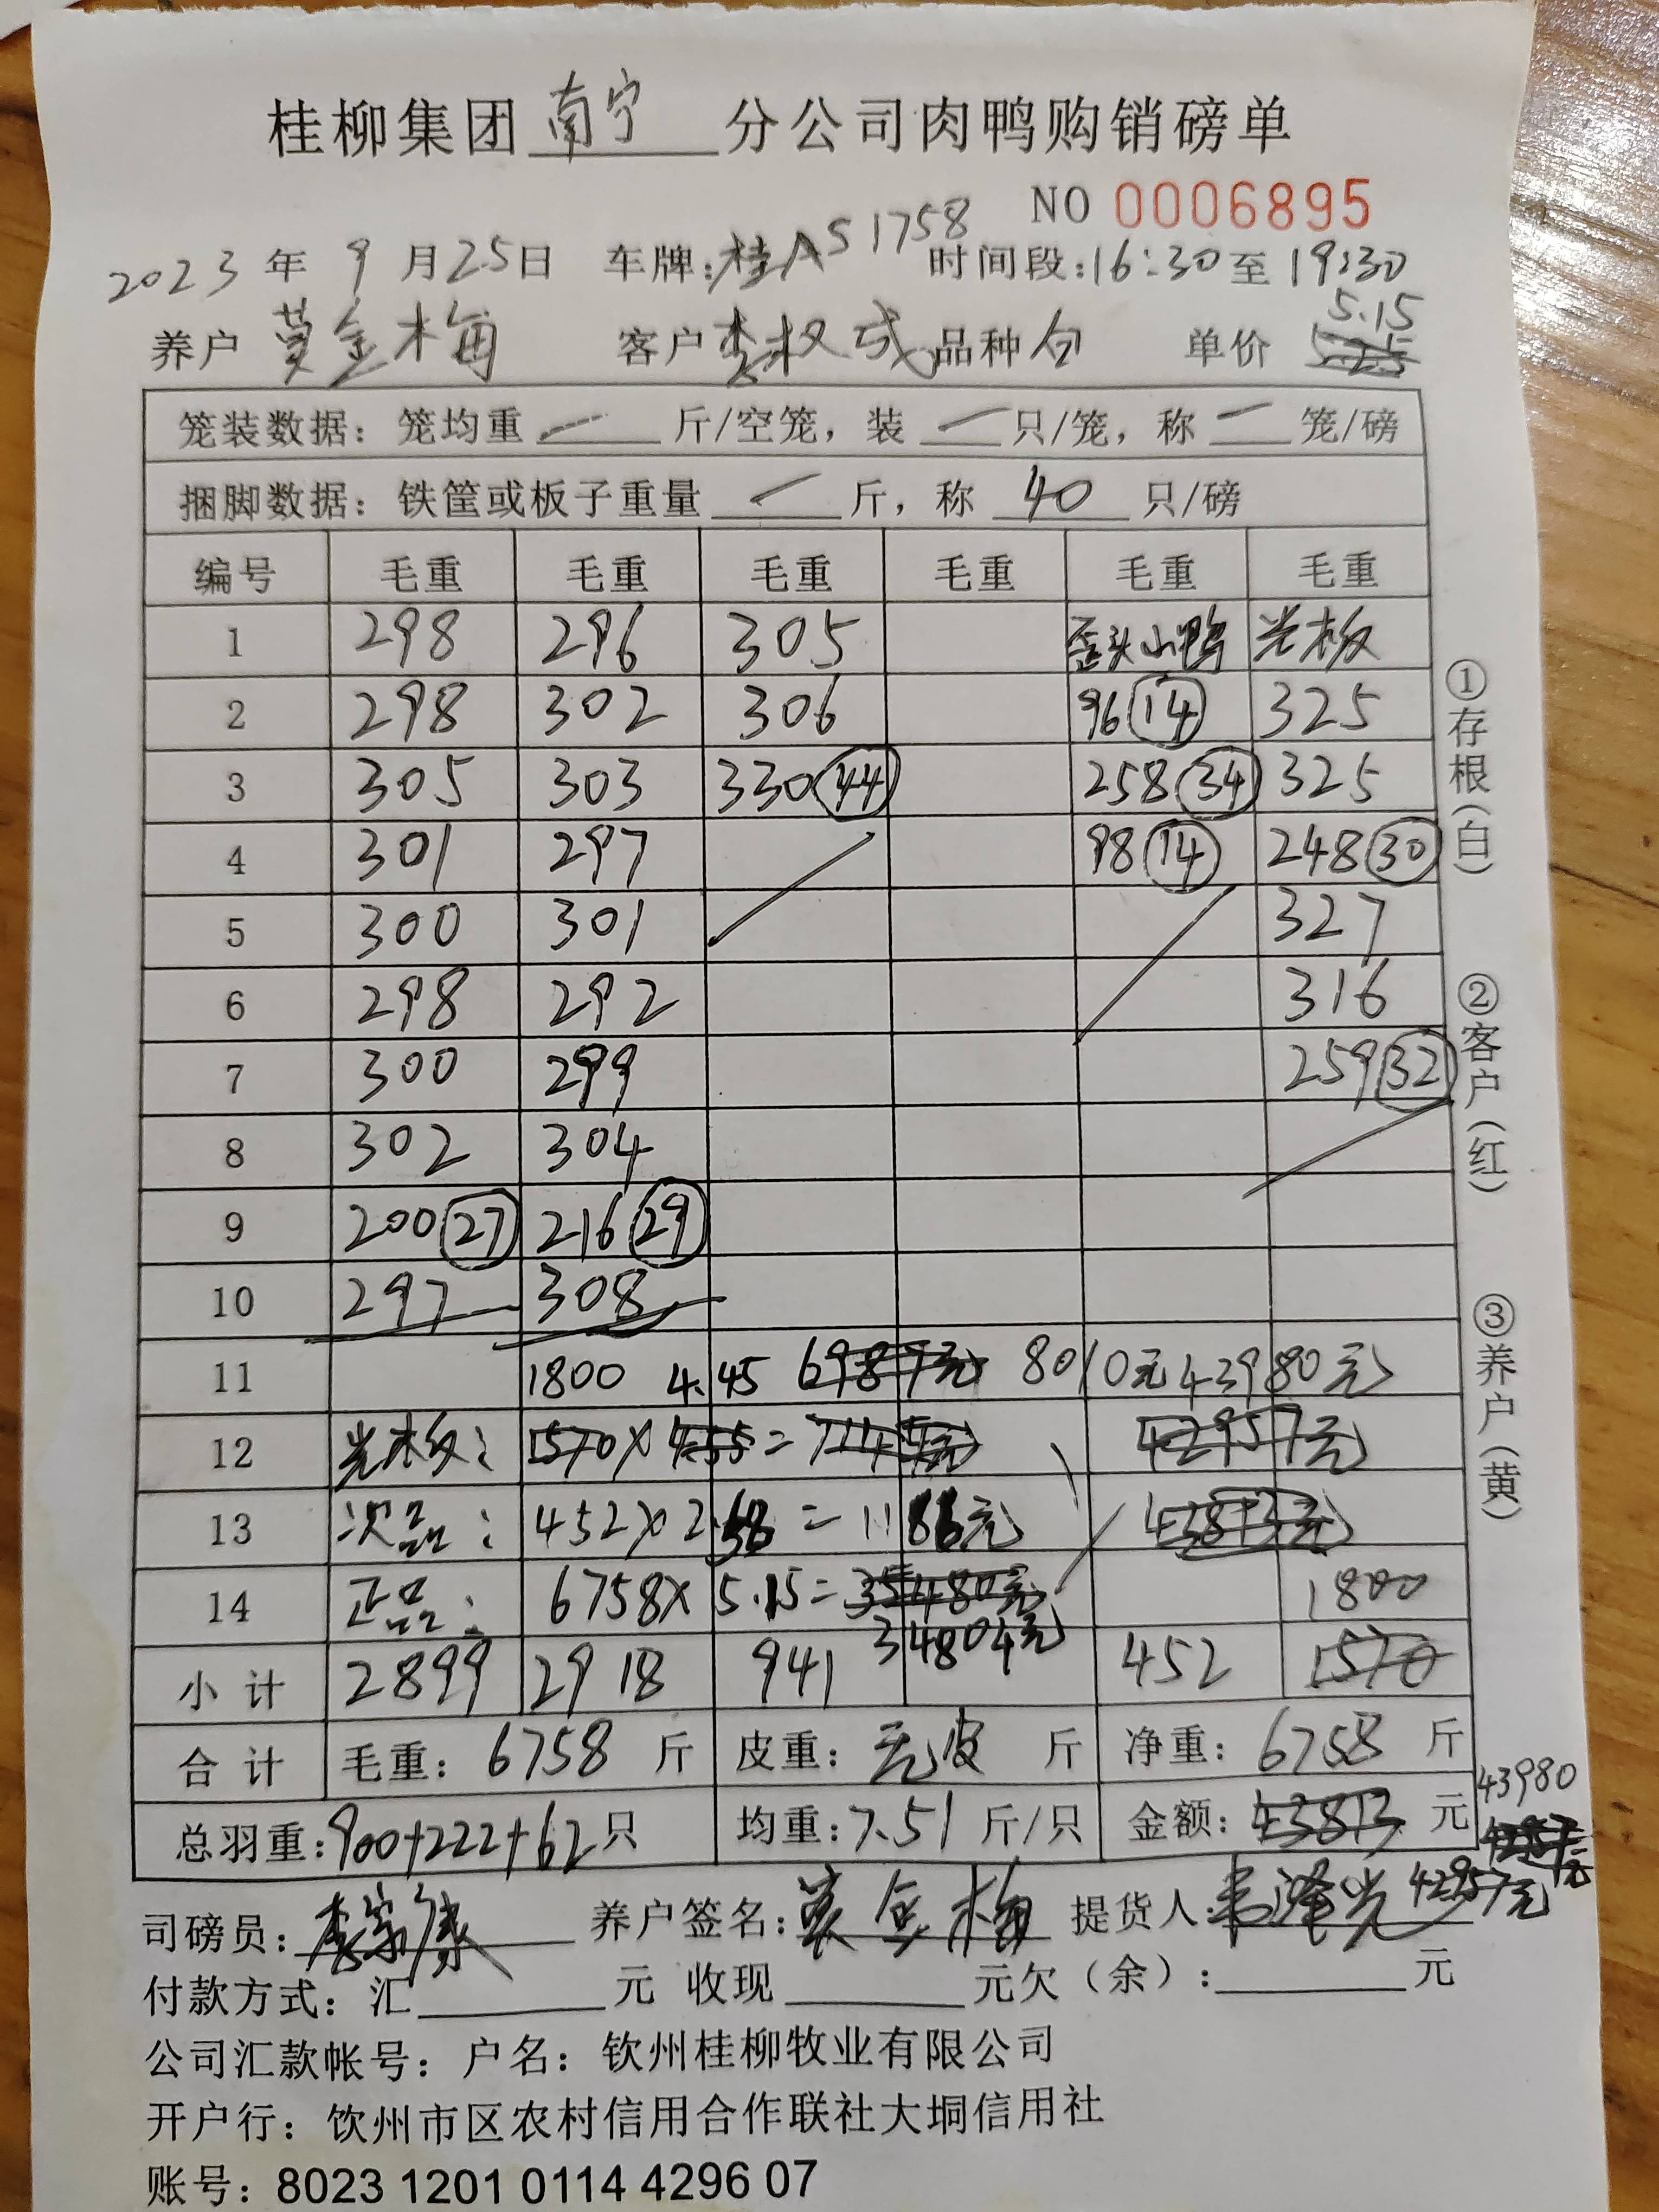 桂柳集团南宁分公司肉鸭购销磅单
NO 0006895
2023年9月25日 车牌:桂AS1758 时间段:16:30至19:30
5.15
养户 黄金梅 客户 李权成 品种 白 单价 5.25
笼装数据：笼均重 — 斤/空笼，装 — 只/笼，称 — 笼/磅
捆脚数据：铁筐或板子重量 — 斤，称 40 只/磅
编号 毛重 毛重 毛重 毛重 毛重 毛重
1 298 296 305 歪头小鸭 光板
2 298 302 306 96 14 325
3 305 303 330 44 258 34 325
4 301 297 98 14 248 30
5 300 301 327
6 298 292 316
7 300 299 259 32
8 302 304
9 200 27 216 29
10 297 308
11 1800 4.45 6987元 8010元 43980元
12 光板: 1570×4.55=7144元 42957元
13 次品: 452×2 = 元 43813元
14 正品: 6758×5.15=35480元 1800
34804元
小计 2899 2918 941 452 1570
合计 毛重: 6758 斤 皮重: 无皮 斤 净重: 6758 斤
43980
总羽重:900+222+62只 均重:7.51斤/只 金额:43813元
42957元
司磅员: 养户签名: 黄金梅 提货人:
付款方式：汇 元 收现 元欠（余）: 元
公司汇款帐号：户名：钦州桂柳牧业有限公司
开户行：饮州市区农村信用合作联社大垌信用社
账号：8023 1201 0114 4296 07
①存根(白)
②客户(红)
③养户(黄)